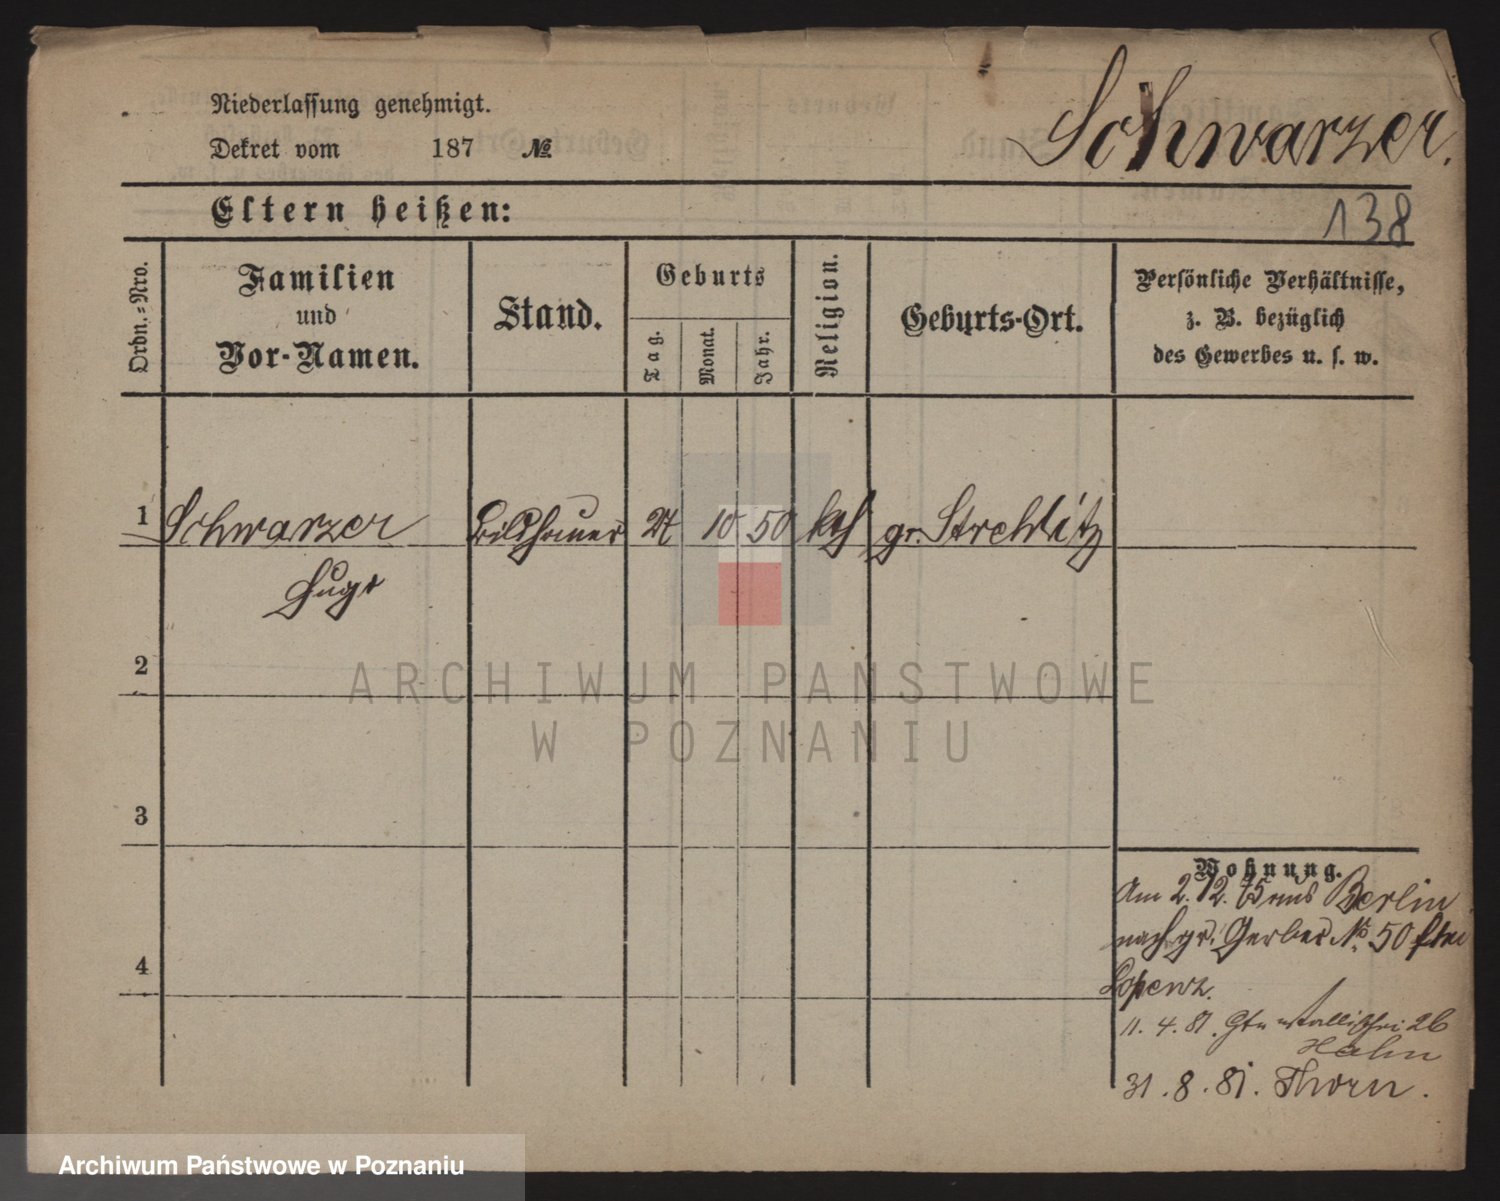 Niederlassung genehmigt.
Dekret vom 187 №
Schwarzer.
Eltern heißen:
138
Ordn.-Nro.
Familien
und
Vor-Namen.
Stand.
Geburts
Tag.
Monat.
Jahr.
Religion.
Geburts-Ort.
Persönliche Verhältnisse,
z. B. bezüglich
des Gewerbes u. s. w.
1 Schwarzer Bildhauer 10 50 kath gr. Strehlitz
Hugo
2
3
4
Wohnung.
Am 2. 12. 75 aus Berlin
nach gr. Gerber № 50
11. 4. 81. 26
Hahn
31. 8. 81. Thorn.
ARCHIWUM PAŃSTWOWE
W POZNANIU
Archiwum Państwowe w Poznaniu